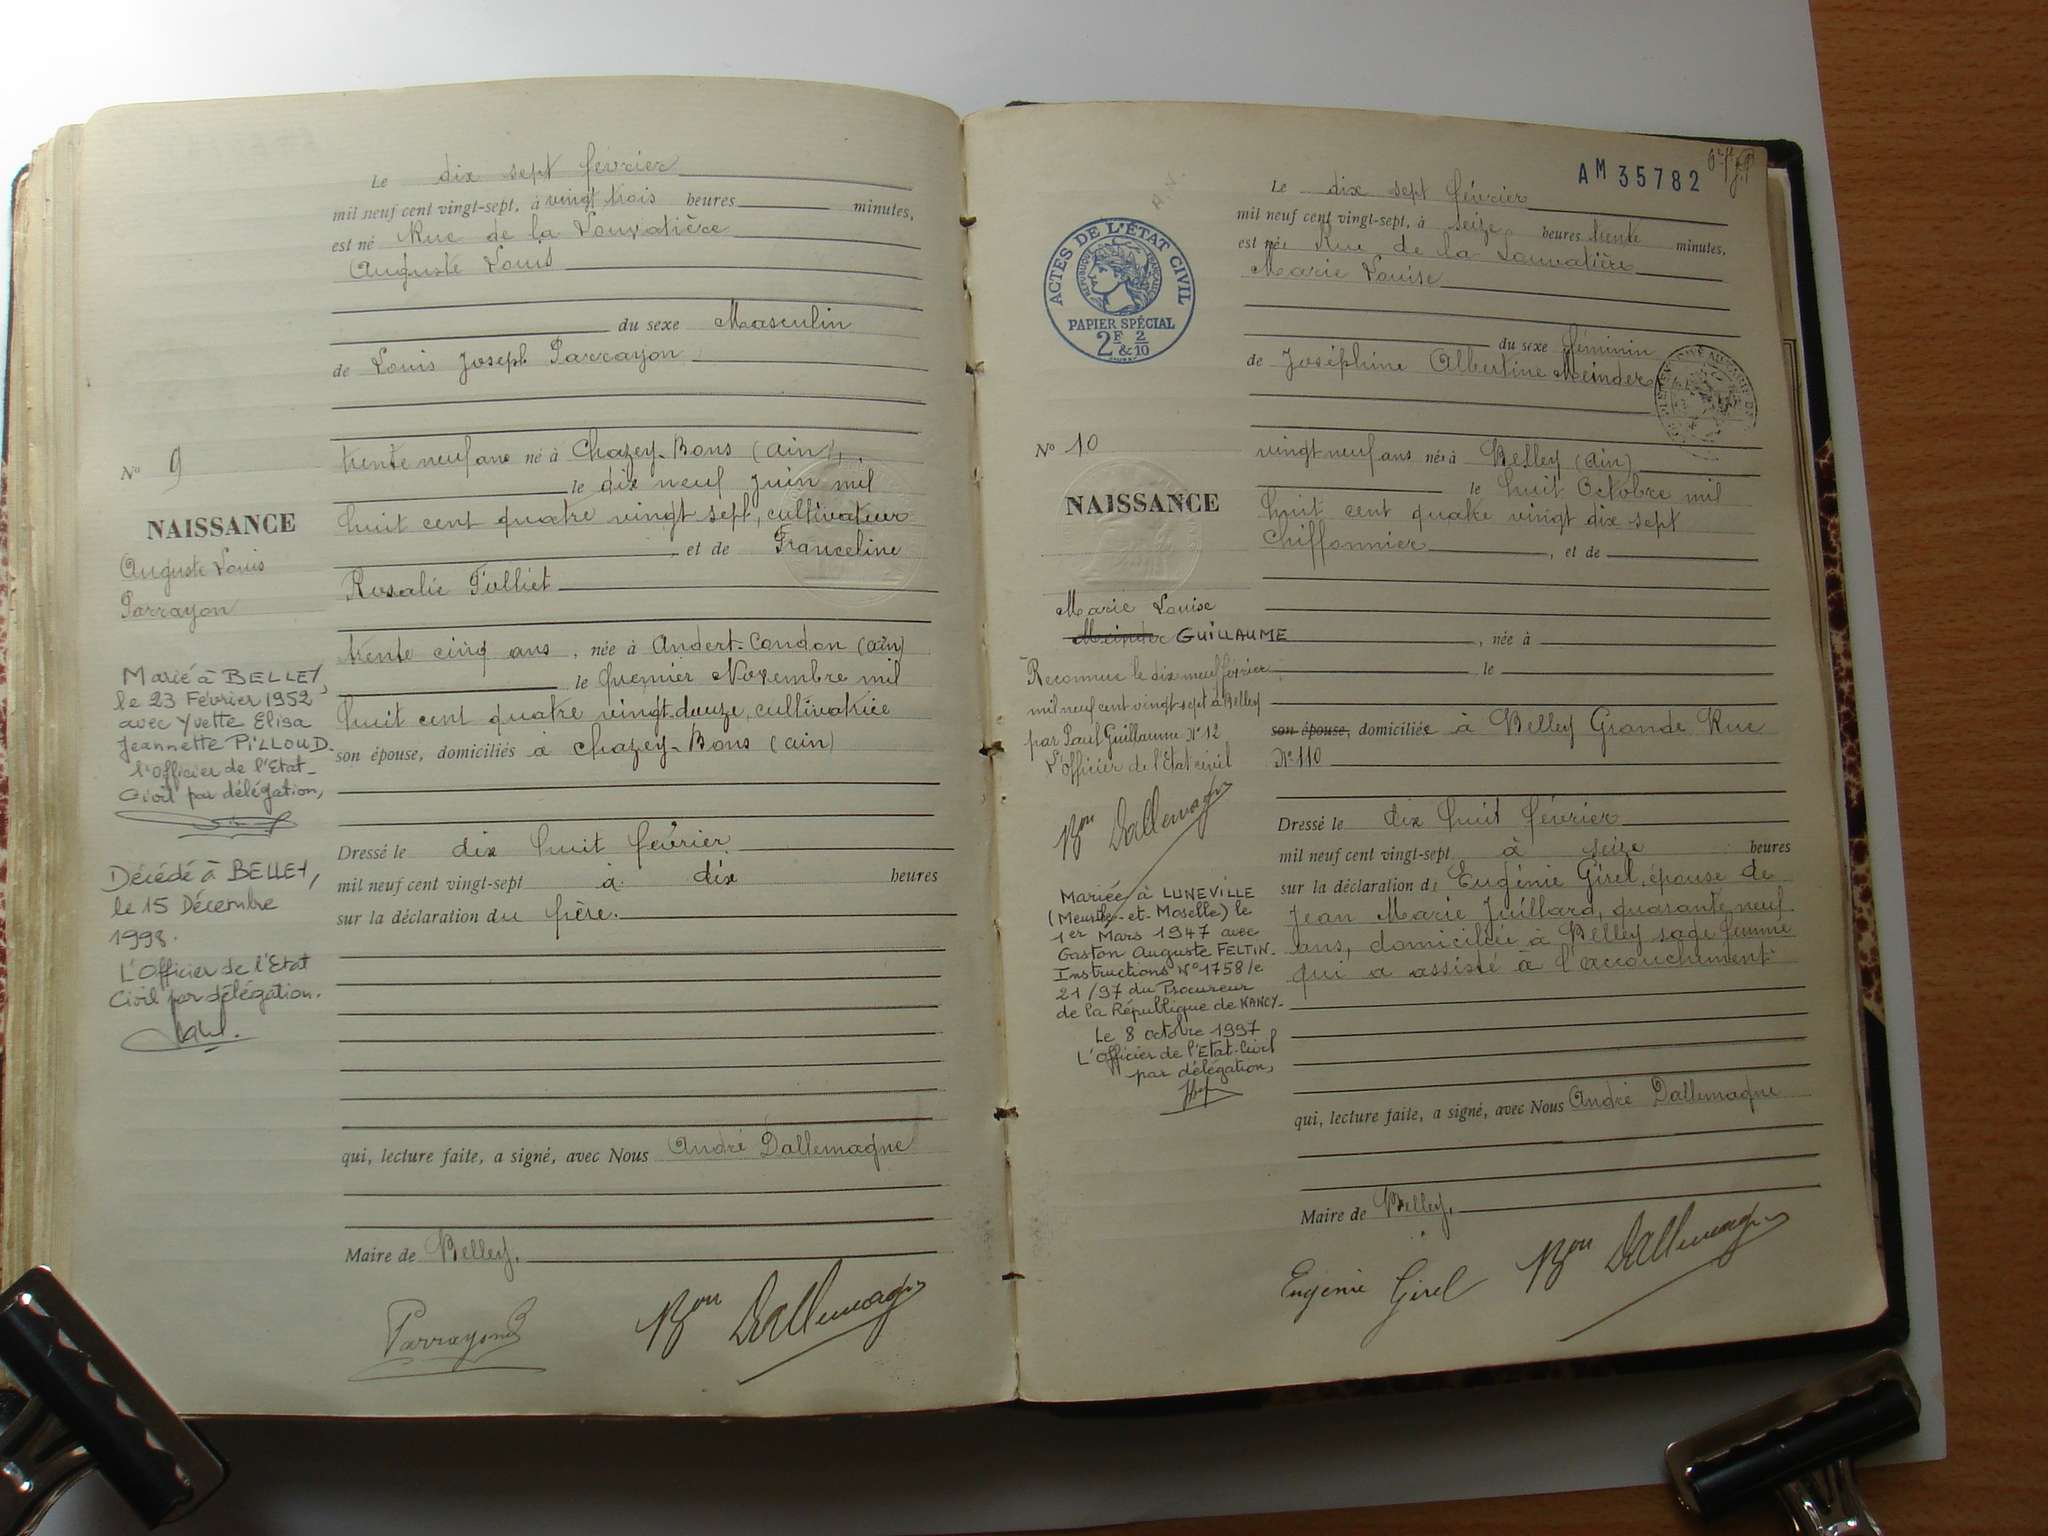 Le dix sept février
mil neuf cent vingt-sept, à vingt trois heures minutes,
est né Rue de la Louvatière
Auguste Louis
du sexe Masculin
de Louis Joseph Parrayon
trente neuf ans né à Chazey-Bons (ain),
le dix neuf juin mil
huit cent quatre vingt sept, cultivateur
et de Franceline
Rosalie Tolliet
trente cinq ans, née à Andert-Condon (ain)
le premier Novembre mil
huit cent quatre vingt-douze, cultivatrice
son épouse, domiciliés à Chazey-Bons (ain)
Dressé le dix huit février
mil neuf cent vingt-sept à dix heures
sur la déclaration du père.
qui, lecture faite, a signé, avec Nous André Dallemagne
Maire de Belley.
Parrayon
Bon Dallemagne
No 9
NAISSANCE
Auguste Louis
Parrayon
Marié à BELLEY,
le 23 Février 1952
avec Yvette Elisa
Jeannette PILLOUD.
L'Officier de l'Etat-
Civil par délégation,
Décédé à BELLEY,
le 15 Décembre
1998.
L'Officier de l'Etat
Civil par délégation.
AM 35782
Le dix sept février
mil neuf cent vingt-sept, à seize heures trente minutes,
est née Rue de la Louvatière
Marie Louise
du sexe féminin
de Joséphine Albertine Meinder
vingt neuf ans née à Belley (ain)
le huit Octobre mil
huit cent quatre vingt dix sept
chiffonnier, et de
, née à
, le
son épouse, domiciliée à Belley Grande Rue
No 110
Dressé le dix huit février
mil neuf cent vingt-sept à seize heures
sur la déclaration de Eugénie Girel, épouse de
Jean Marie Juillard, quarante neuf
ans, domiciliée à Belley sage femme
qui a assisté à l'accouchement
qui, lecture faite, a signé, avec Nous André Dallemagne
Maire de Belley.
Eugénie Girel
Bon Dallemagne
ACTES DE L'ÉTAT CIVIL
RÉPUBLIQUE FRANÇAISE
PAPIER SPÉCIAL
2F & 2/10
No 10
NAISSANCE
Marie Louise
Meinder GUILLAUME
Reconnue le dix neuf février
mil neuf cent vingt-sept à Belley
par Paul Guillaume No 12
L'Officier de l'Etat civil
Bon Dallemagne
Mariée à LUNEVILLE
(Meurthe-et-Moselle) le
1er Mars 1947 avec
Gaston Auguste FELTIN.
Instructions No 1758/e
21/97 du Procureur
de la République de NANCY.
Le 8 octobre 1997
L'Officier de l'Etat-Civil
par délégation,